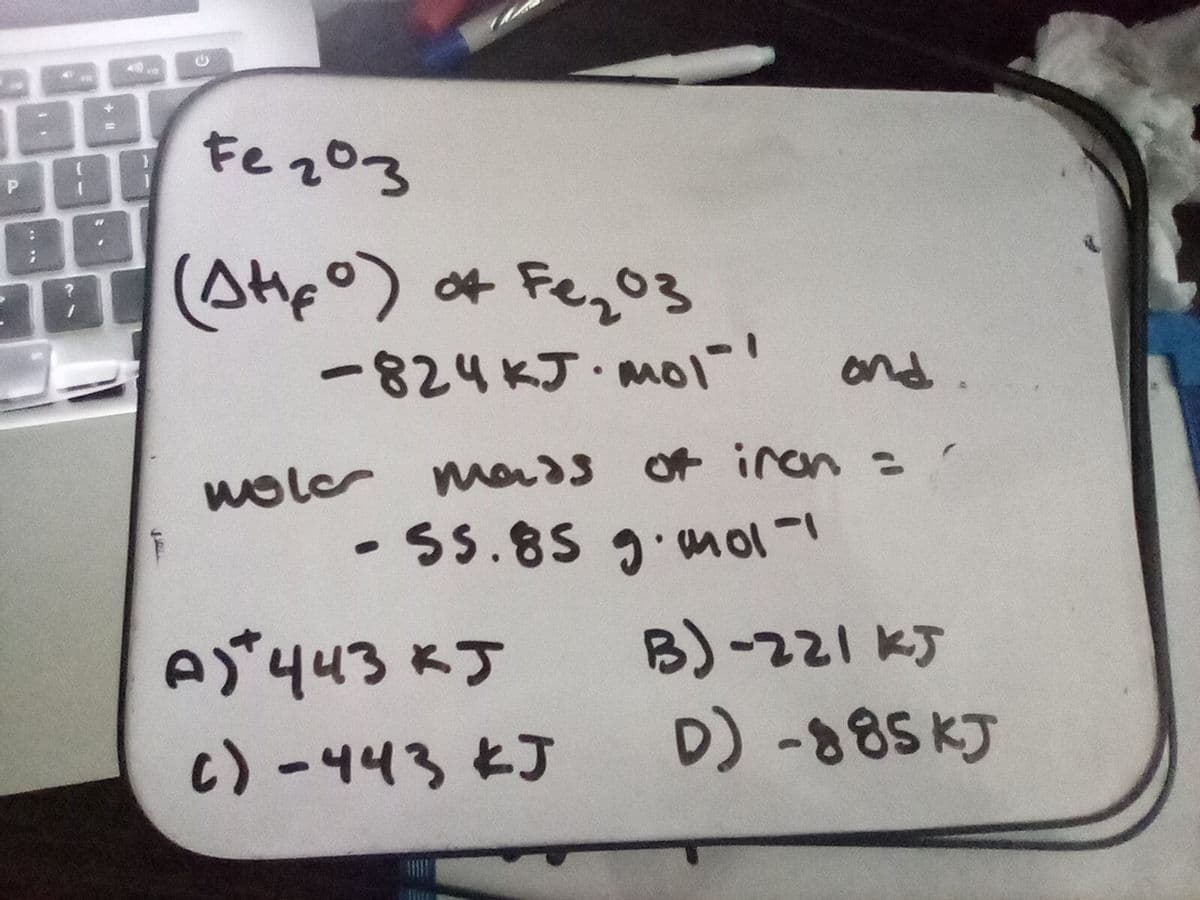 Fe2O3
(ΔHf°) of Fe2O3
-824 KJ·mol-1 and.
moler mass of iron =
- 55.85 g·mol-1
A) +443 KJ B) -221 KJ
C) -443 KJ D) -885 KJ